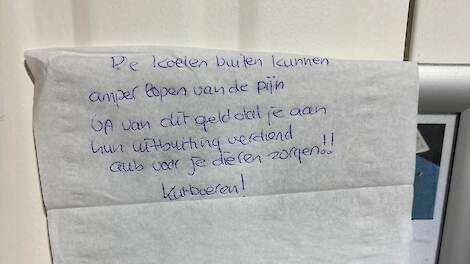 De koeien buiten kunnen
amper lopen van de pijn
Ga van dit geld dat je aan
hun uitbuiting verdiend
aub voor je dieren zorgen!!
Kutboeren!